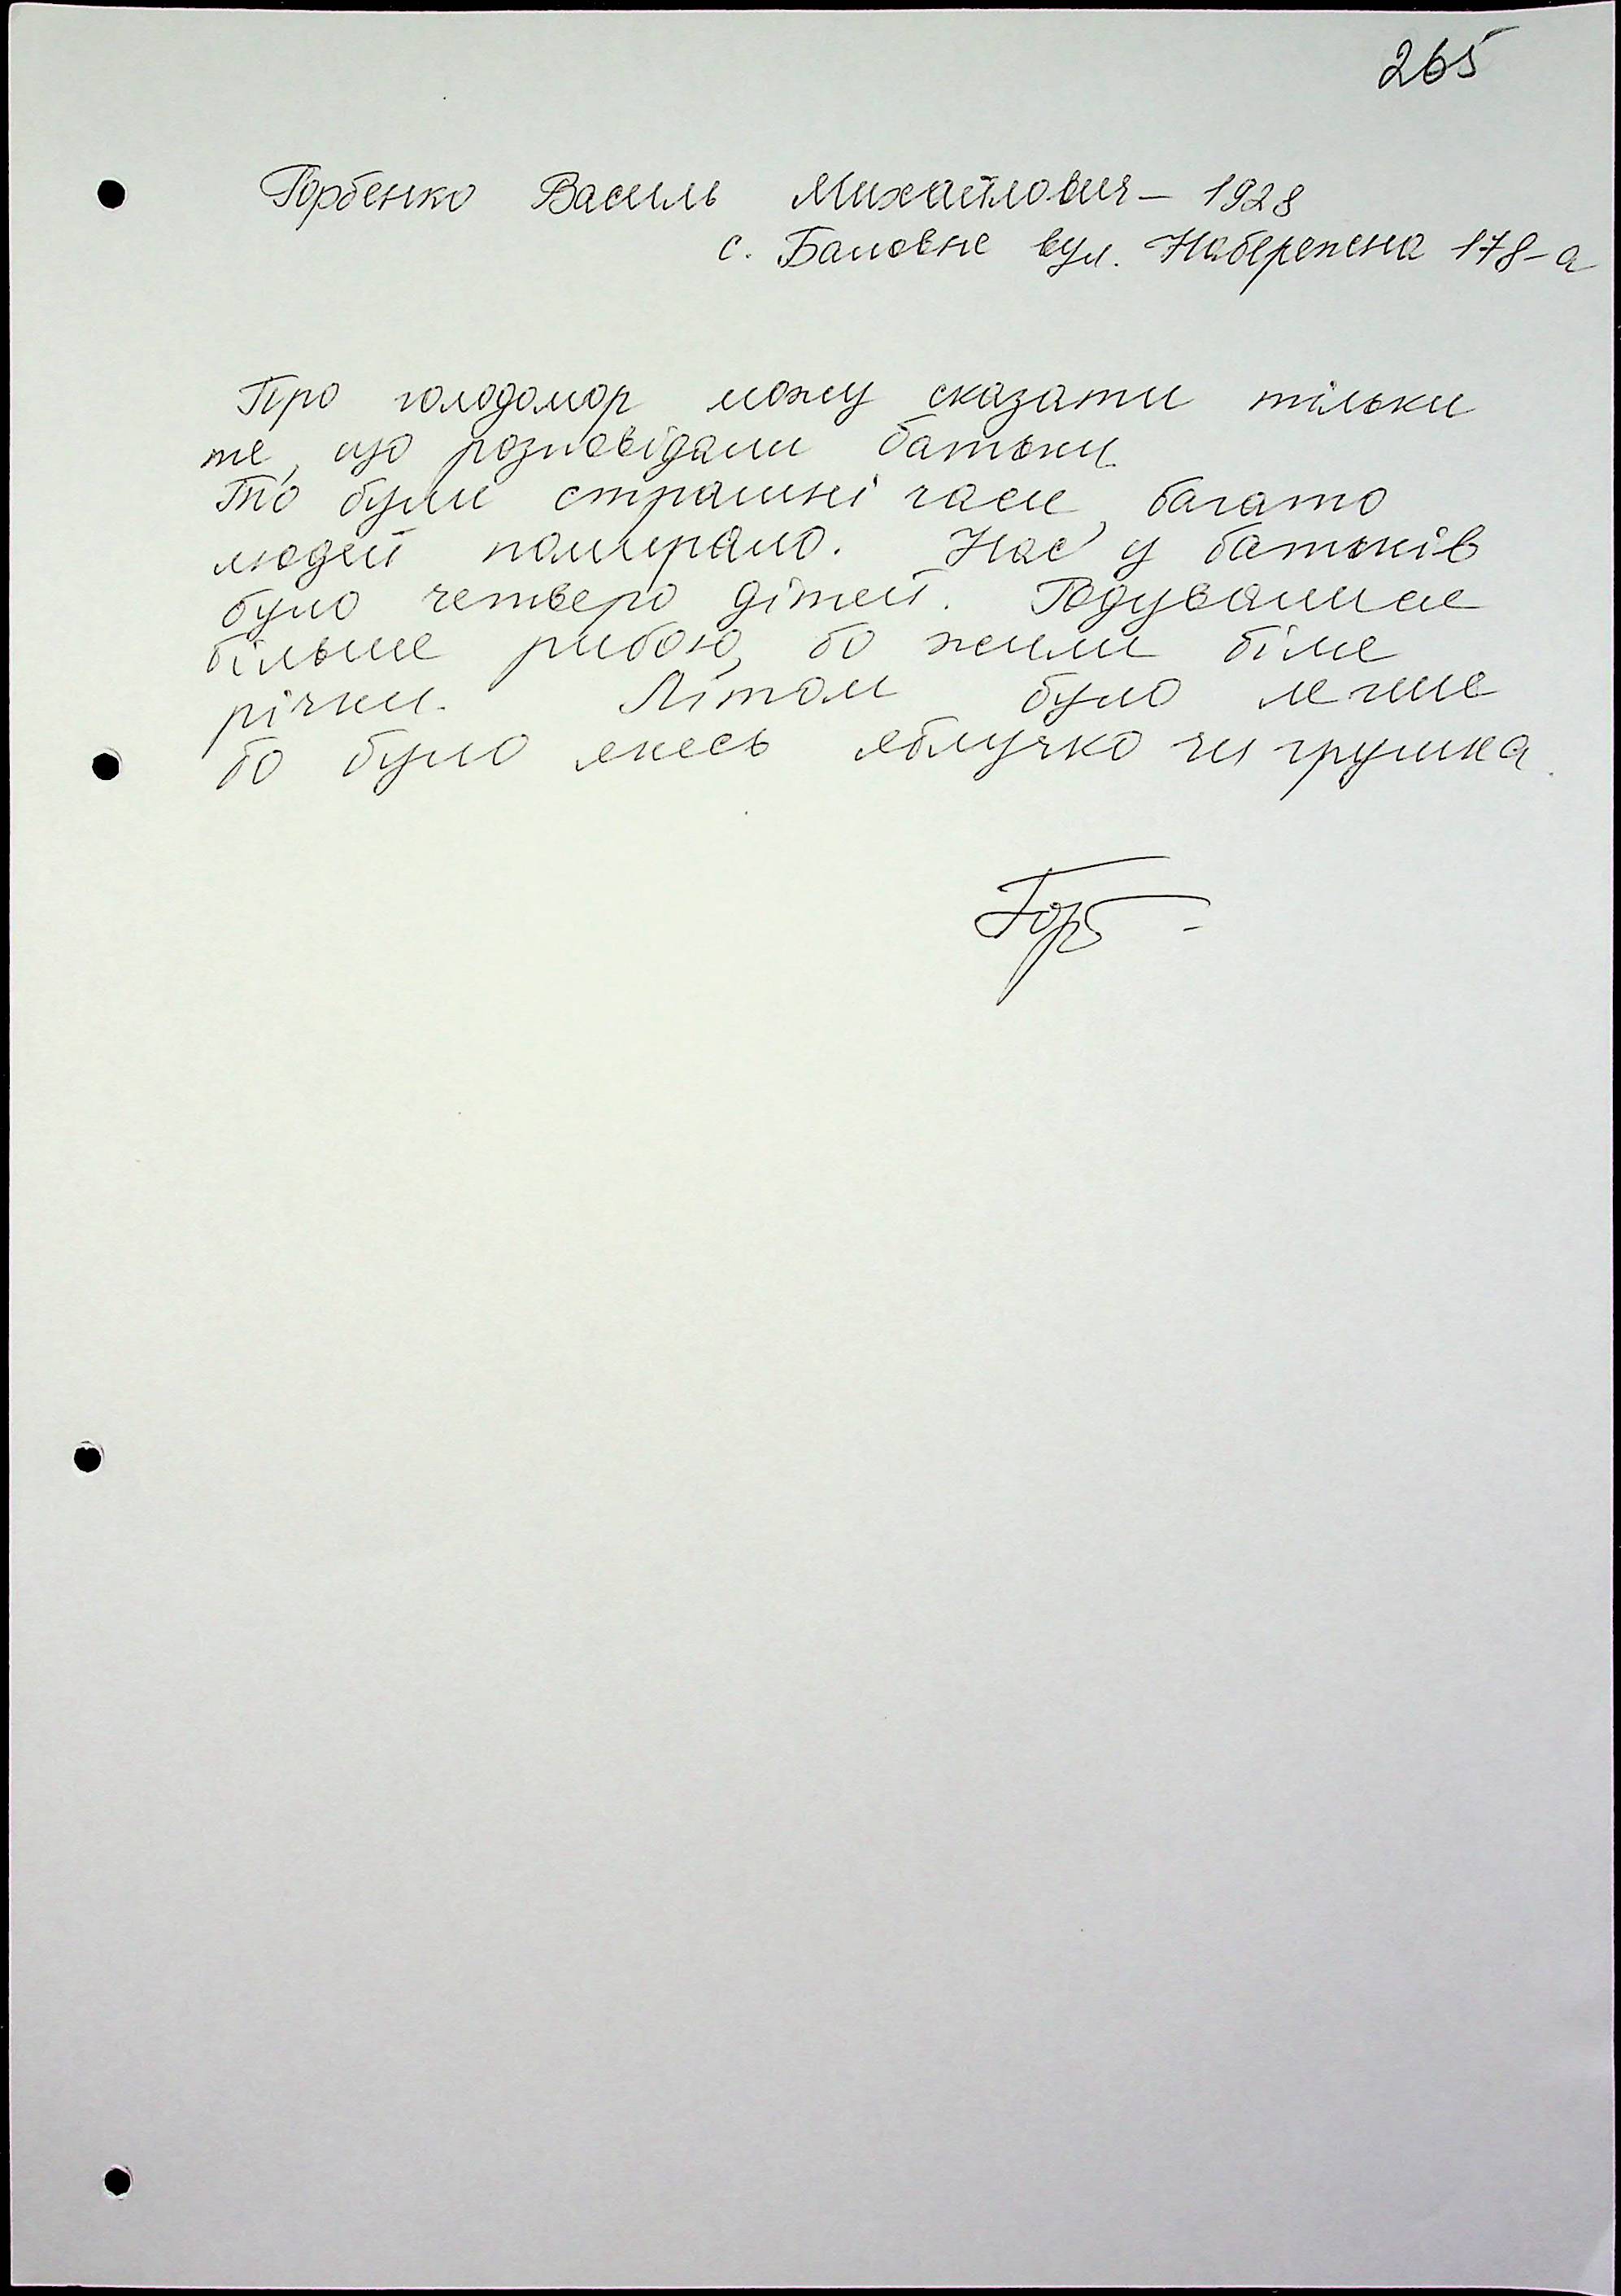 265
Горбенко Василь Михайлович – 1928
с. Баловне вул. Набережена 178-а
Про голодомор можу сказати тільки
те, що розповідали батьки.
То були страшні часи, багато
людей помирало. Нас у батьків
було четверо дітей. Годувалися
більше рибою, бо жили біля
річки. Літом було легше
бо було якесь яблучко чи грушка.
Горб -